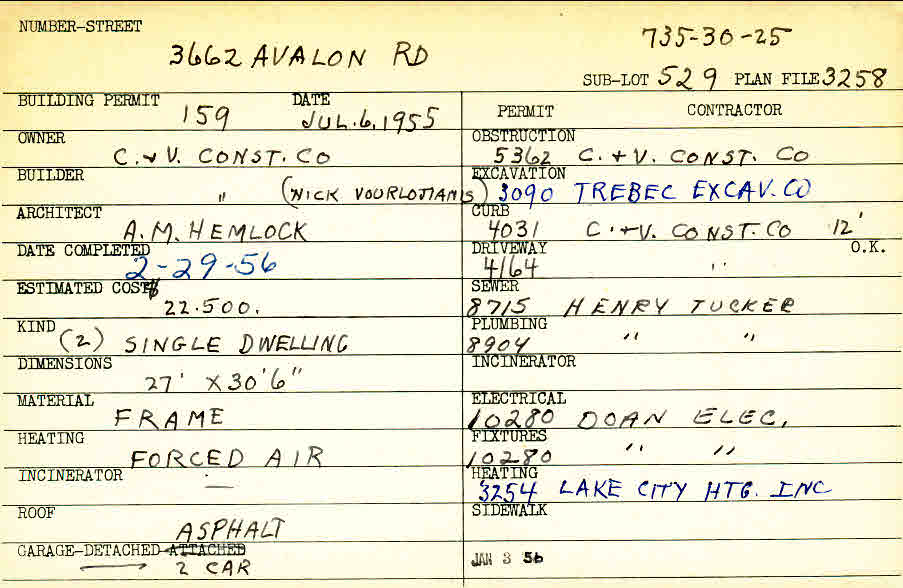 NUMBER-STREET
3662 AVALON RD
735-30-25
SUB-LOT 529 PLAN FILE 3258
BUILDING PERMIT 159 DATE JUL. 6, 1955
PERMIT CONTRACTOR
OWNER C. & V. CONST. CO
OBSTRUCTION 5362 C. + V. CONST. CO
BUILDER " (NICK VOURLOTIANIS)
EXCAVATION 3090 TREBEC EXCAV. CO
ARCHITECT A. M. HEMLOCK
CURB 4031 C. + V. CONST. CO 12'
DATE COMPLETED 2-29-56
DRIVEWAY 4164 " O.K.
ESTIMATED COST $ 22.500.
SEWER 8715 HENRY TUCKER
KIND (2) SINGLE DWELLING
PLUMBING 8904 " "
DIMENSIONS 27' X 30'6"
INCINERATOR
MATERIAL FRAME
ELECTRICAL 10280 DOAN ELEC.
HEATING FORCED AIR
FIXTURES 10280 " "
INCINERATOR —
HEATING 3254 LAKE CITY HTG. INC
ROOF ASPHALT
SIDEWALK
GARAGE-DETACHED-ATTACHED
2 CAR
JAN 3 56